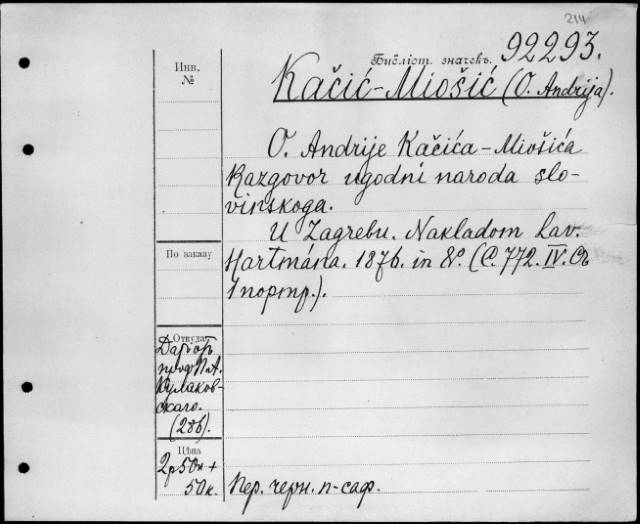 214
Библіот. значекъ. 92293.
Инв.
№
Kačić-Miošić (O. Andrija).
O. Andrije Kačića-Miošića
Razgovor ugodni naroda slo-
vinskoga.
U Zagrebu. Nakladom Lav.
Hartmána. 1876. in 8°. (C. 772. IV. Съ
1 портр.).
По заказу
Откуда
Даръ отъ
проф. П. А.
Кулаков-
скаго.
(286).
Цѣна
2р 50к +
50к.
Пер. черн. п-саф.